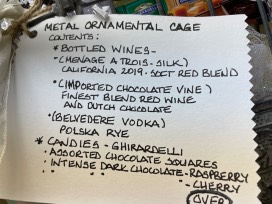 METAL ORNAMENTAL CAGE
CONTENTS:
* BOTTLED WINES-
• (MENAGE A TROIS - SILK)
CALIFORNIA 2019 - SOFT RED BLEND
• (IMPORTED CHOCOLATE VINE)
FINEST BLEND RED WINE
AND DUTCH CHOCOLATE
• (BELVEDERE VODKA)
POLSKA RYE
* CANDIES - GHIRARDELLI
• ASSORTED CHOCOLATE SQUARES
• INTENSE DARK CHOCOLATE - RASPBERRY
• " " " - CHERRY
OVER